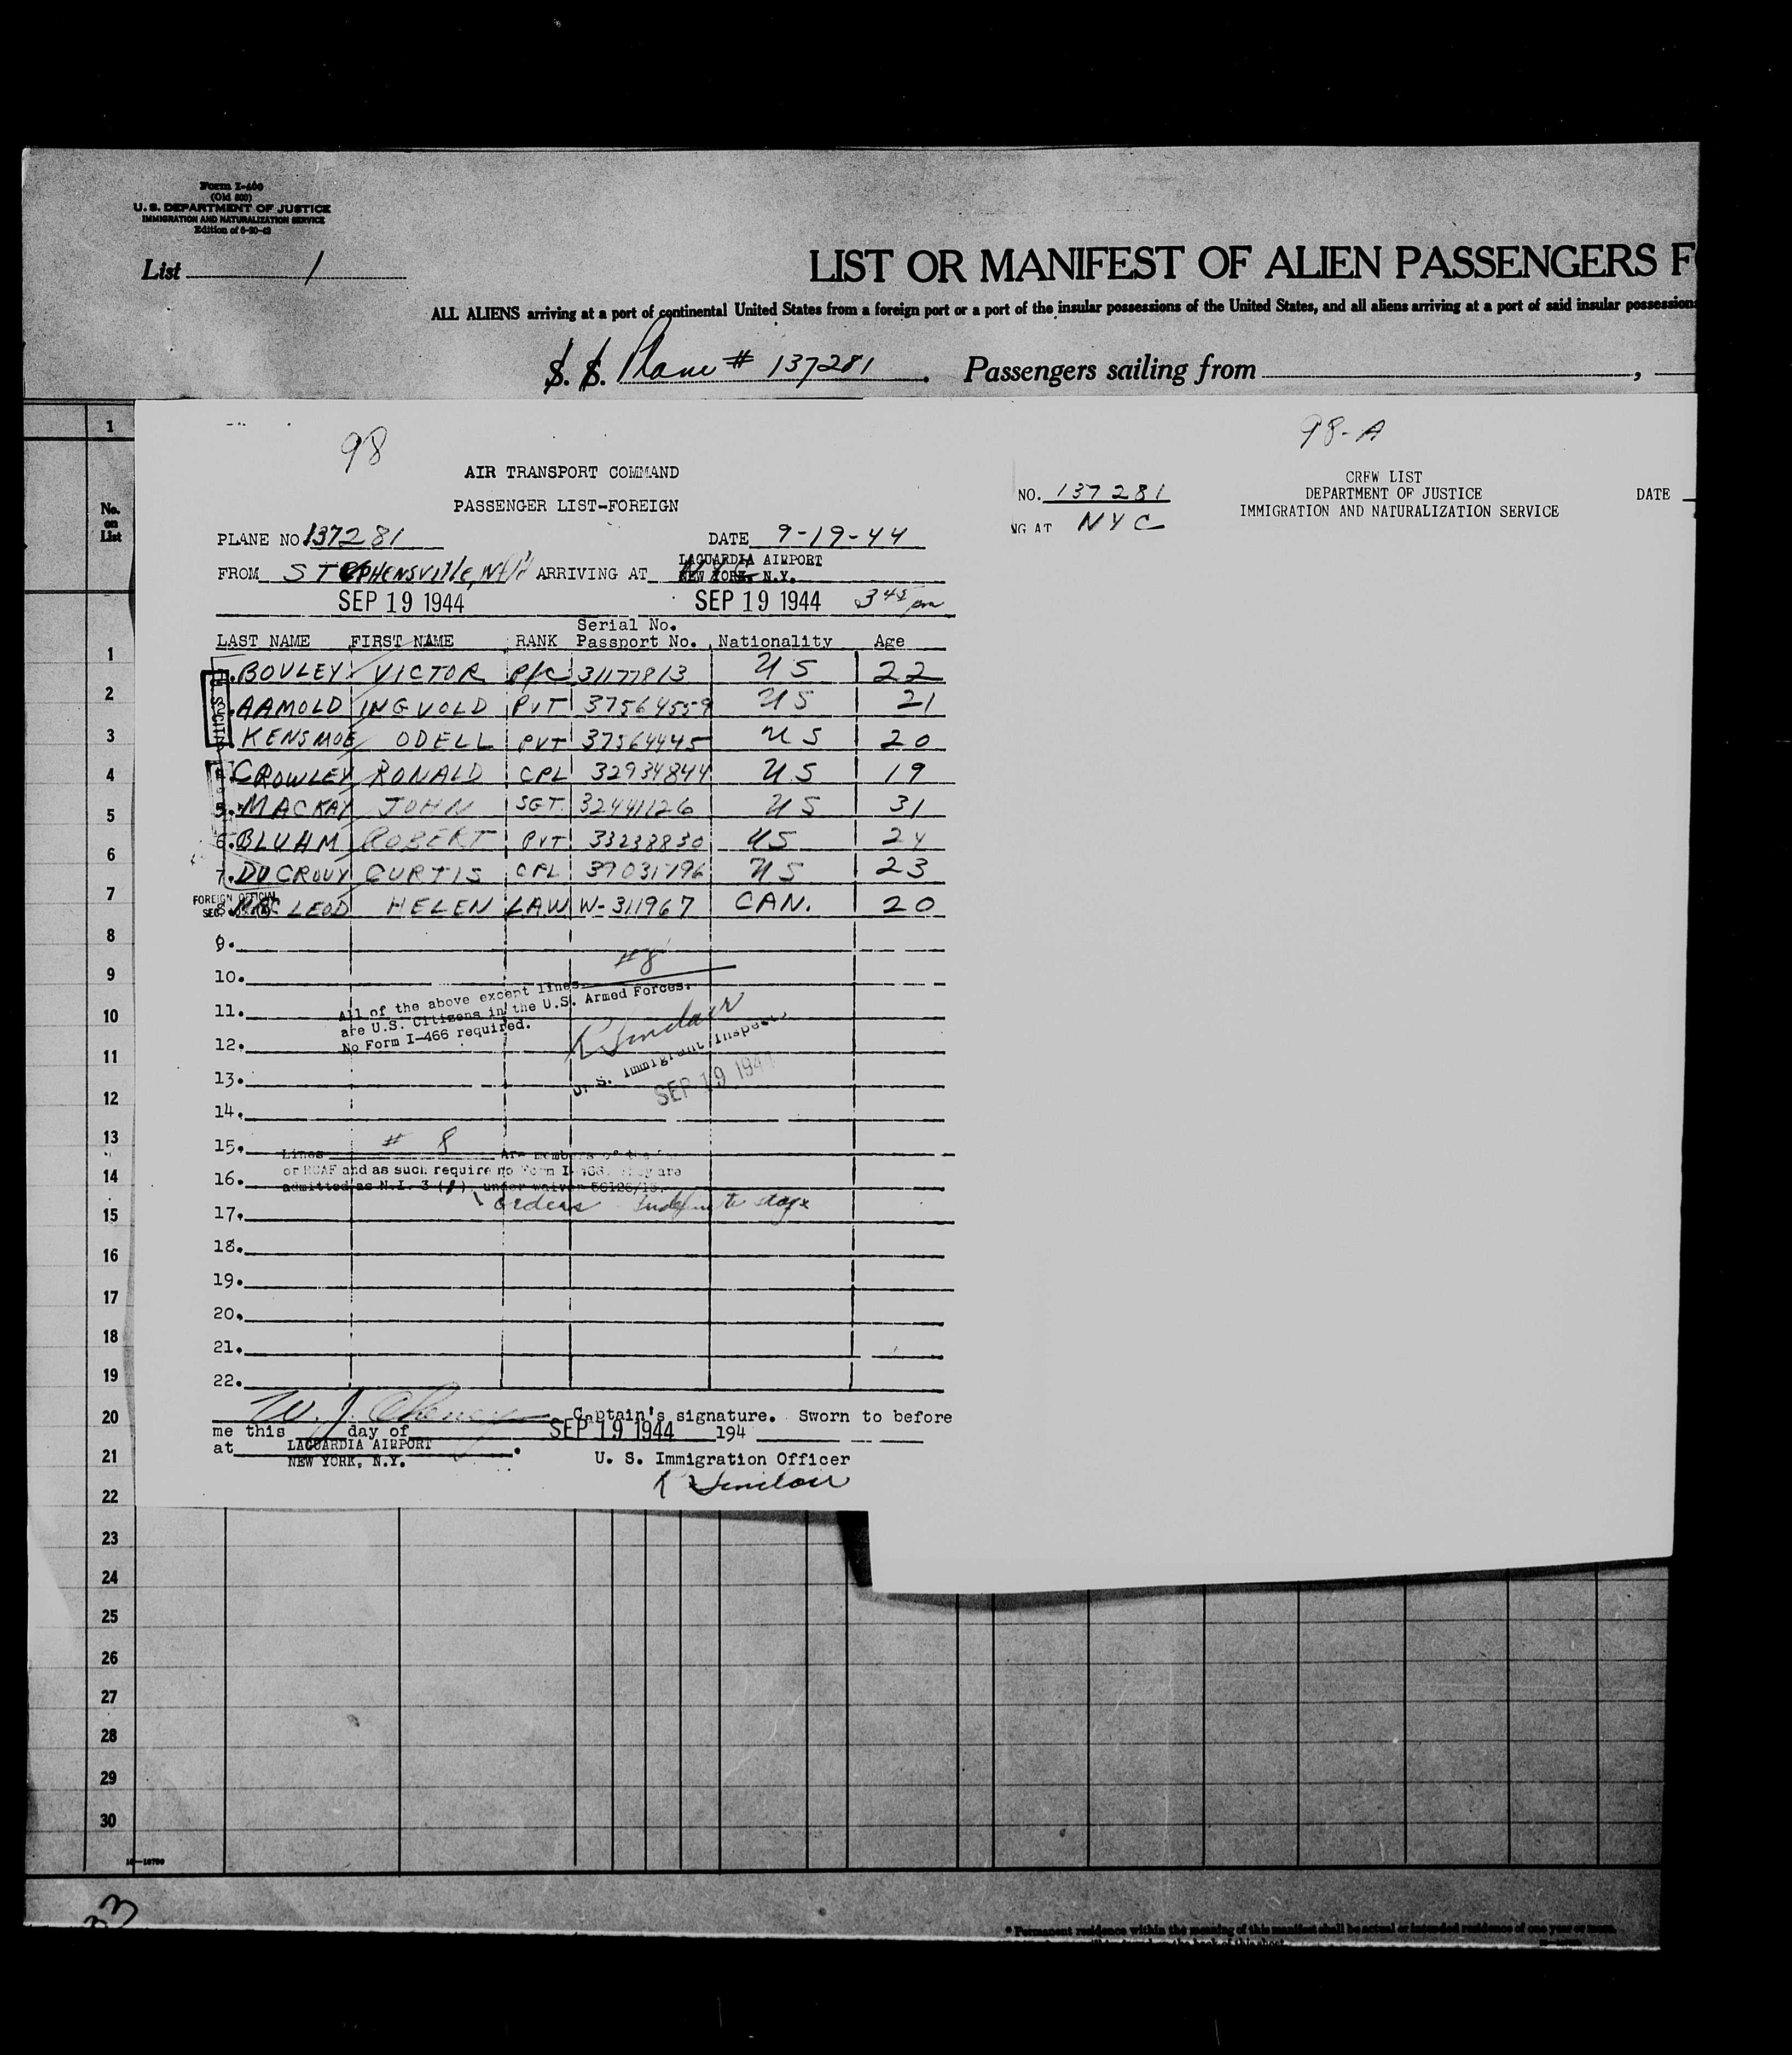 Form I-400
(Old 500)
U. S. DEPARTMENT OF JUSTICE
IMMIGRATION AND NATURALIZATION SERVICE
Edition of 6-20-43
List 1
LIST OR MANIFEST OF ALIEN PASSENGERS F
ALL ALIENS arriving at a port of continental United States from a foreign port or a port of the insular possessions of the United States, and all aliens arriving at a port of said insular possession
S. S. Plane # 137281. Passengers sailing from ,
98
AIR TRANSPORT COMMAND
PASSENGER LIST-FOREIGN
PLANE NO 137281 DATE 9-19-44
FROM STEPHENSVILLE, Nfld ARRIVING AT NYC LAGUARDIA AIRPORT
NEW YORK, N.Y.
SEP 19 1944 SEP 19 1944 3 45 pm
LAST NAME FIRST NAME RANK Serial No. Passport No. Nationality Age
1. BOVLEY VICTOR Pfc 31177813 US 22
2. AAMOLD INGVOLD PVT 37564559 US 21
3. KENSMOE ODELL PVT 37564445 US 20
4. CROWLEY RONALD CPL 32934844 US 19
5. MACKAY JOHN SGT 32441126 US 31
6. BLUHM ROBERT PVT 33238830 US 24
7. DUCROUY CURTIS CPL 37031796 US 23
FOREIGN OFFICIAL
8. MACLEOD HELEN LAW W-311967 CAN. 20
9.
10.
11.
12.
13.
14.
15.
16.
17.
18.
19.
20.
21.
22.
All of the above except lines #8
are U.S. Citizens in the U.S. Armed Forces.
No Form I-466 required.
R Sinclair
U. S. Immigrant Inspector
SEP 19 1944
Lines # 8 Are members of the
or RCAF and as such require no Form I-466. They are
admitted as N.I. 3 (1) under waiver 56126/15.
orders Indefinite stay
W. J. Cheney Captain's signature. Sworn to before
me this day of SEP 19 1944 194
at LAGUARDIA AIRPORT
NEW YORK, N.Y.
U. S. Immigration Officer
R Sinclair
98-A
CREW LIST
DEPARTMENT OF JUSTICE
IMMIGRATION AND NATURALIZATION SERVICE
NO. 137281 DATE
NG AT NYC
No.
on
List
1
1
2
3
4
5
6
7
8
9
10
11
12
13
14
15
16
17
18
19
20
21
22
23
24
25
26
27
28
29
30
33
* Permanent residence within the meaning of this manifest shall be actual or intended residence of one year or more.